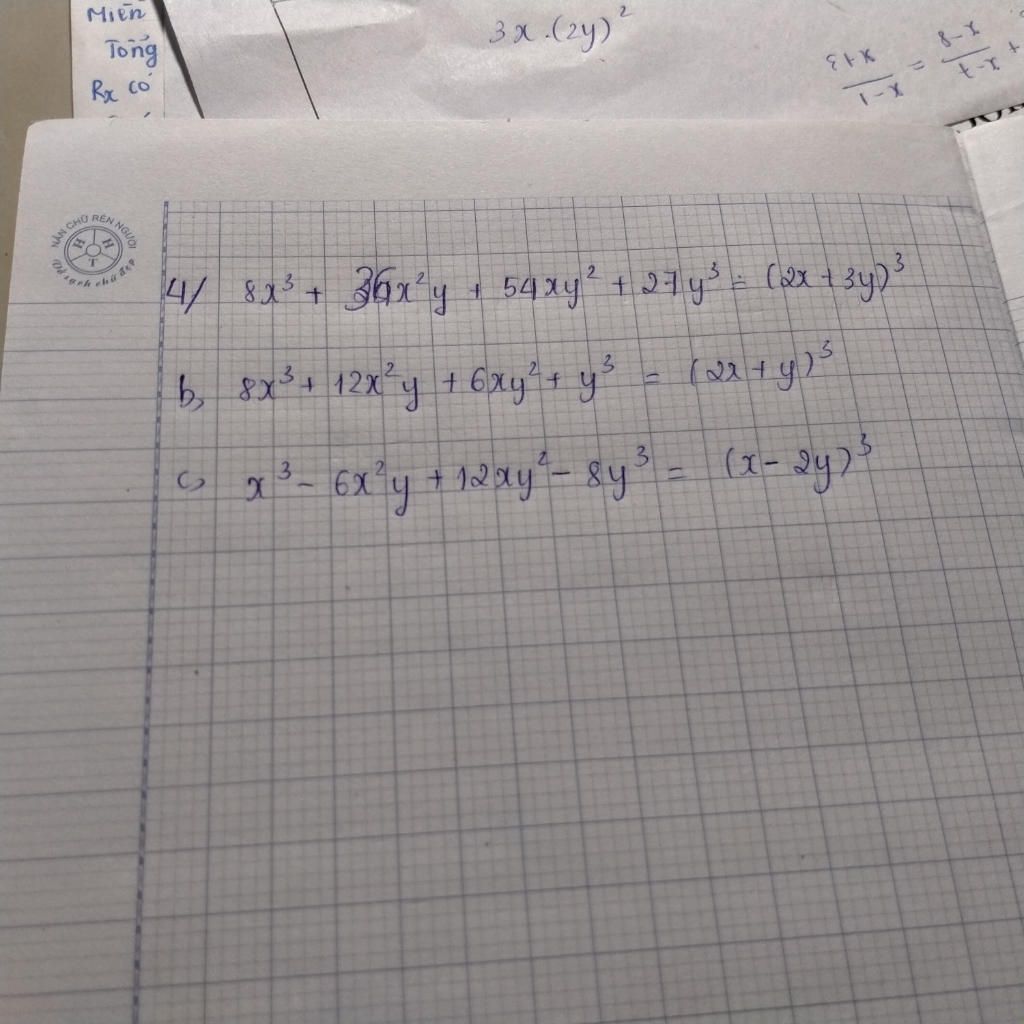 Miền
Tổng
Rx có
3x.(2y)²
x+3/x-1 = x-8/x-7 +
NẮN CHỮ RÈN NGƯỜI
H H T
Vở sạch chữ đẹp
4/ 8x³ + 36x²y + 54xy² + 27y³ = (2x + 3y)³
b, 8x³ + 12x²y + 6xy² + y³ = (2x + y)³
c, x³ - 6x²y + 12xy² - 8y³ = (x - 2y)³